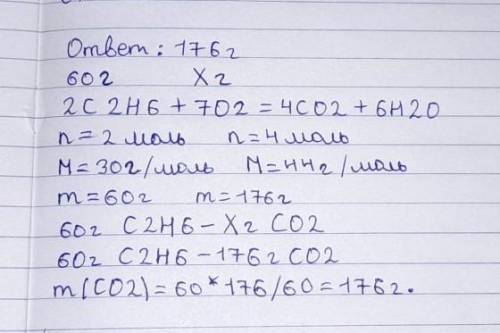 Ответ: 176г
60г Xг
2C2H6 + 7O2 = 4CO2 + 6H2O
n=2 моль n=4 моль
M=30г/моль M=44г/моль
m=60г m=176г
60г C2H6 - Xг CO2
60г C2H6 - 176г CO2
m(CO2)=60*176/60=176г.